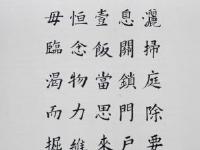 灑掃庭除要
息關鎖門戶
壹飯當思來
恒念物力維
毋臨渴而掘